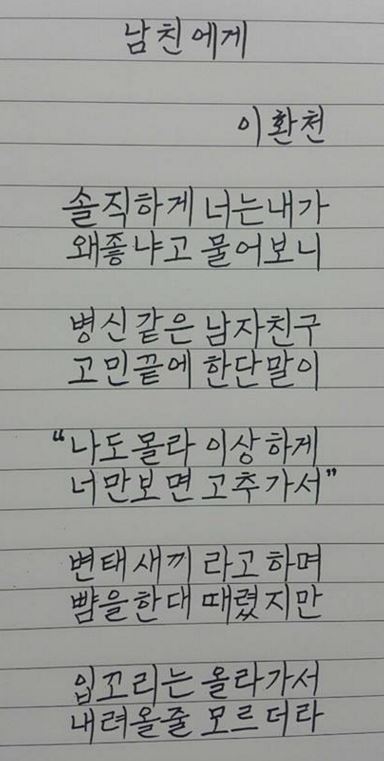 남친에게
이환천
솔직하게 너는내가
왜좋냐고 물어보니
병신같은 남자친구
고민끝에 한단말이
“나도몰라 이상하게
너만보면 고추가서”
변태새끼 라고하며
뺨을한대 때렸지만
입꼬리는 올라가서
내려올줄 모르더라